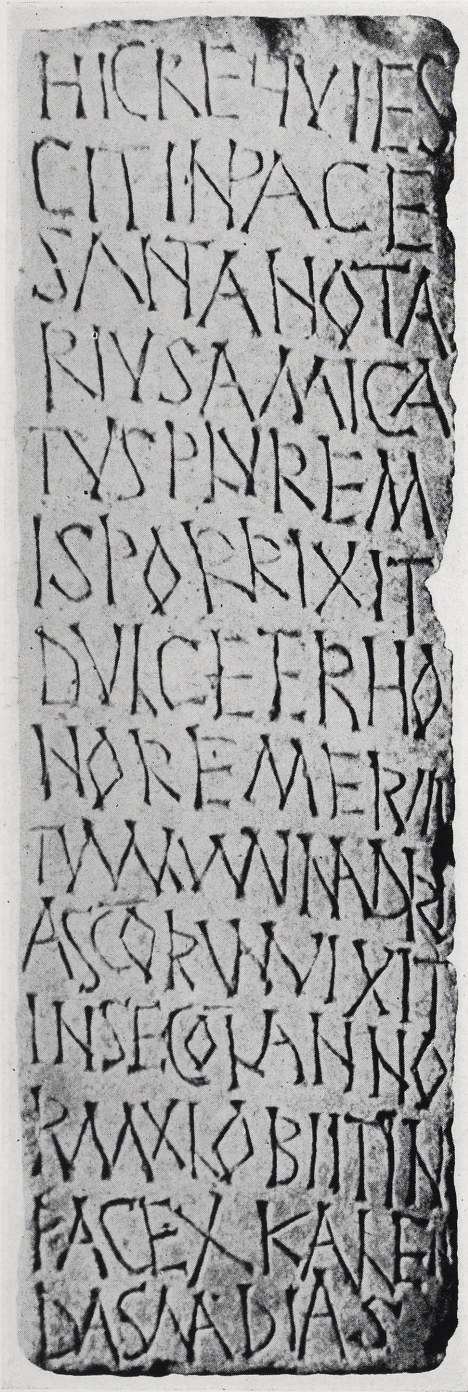 HICREQVIES
CITINPACE
SANTANOTA
RIVSAMICA
TVSPLVREM
ISPORRIXIT
DVLCETERHO
NOREMERI
TVM
ASCORVMVIXIT
INSECOLANNO
RVMXLOBIITIN
PACEXKALE
DASMADIAS